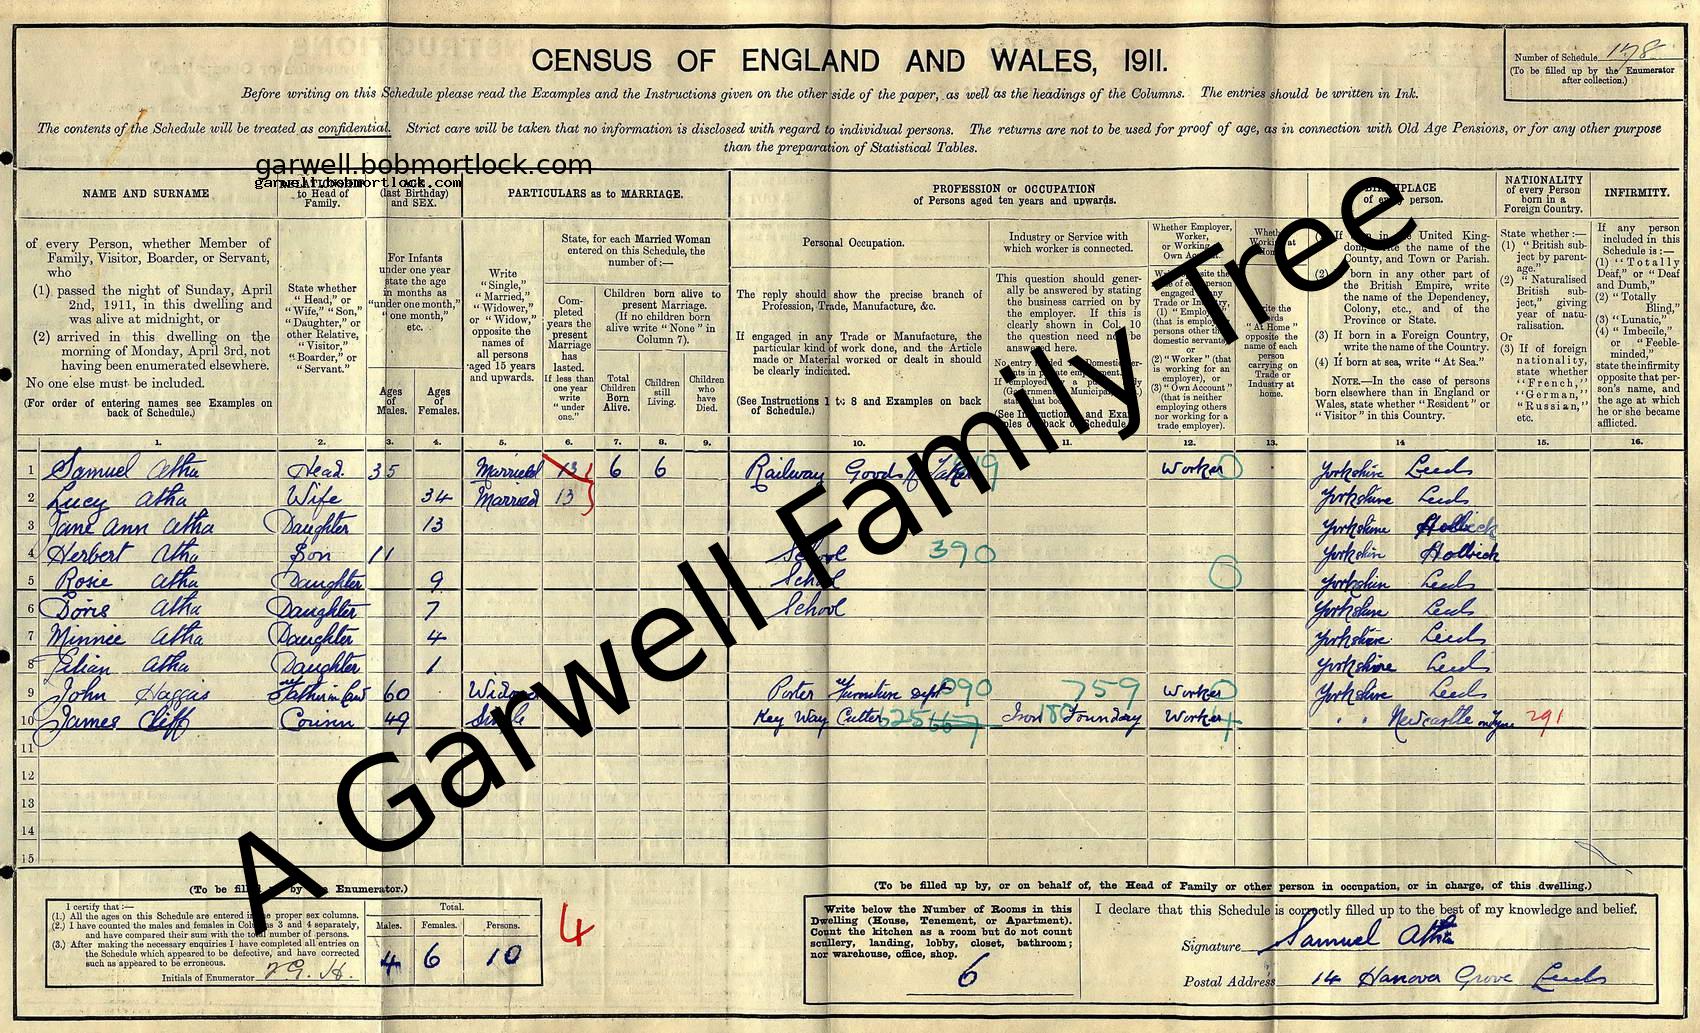 CENSUS OF ENGLAND AND WALES, 1911.
Number of Schedule 178
(To be filled up by the Enumerator
after collection.)
Before writing on this Schedule please read the Examples and the Instructions given on the other side of the paper, as well as the headings of the Columns. The entries should be written in Ink.
The contents of the Schedule will be treated as confidential. Strict care will be taken that no information is disclosed with regard to individual persons. The returns are not to be used for proof of age, as in connection with Old Age Pensions, or for any other purpose
than the preparation of Statistical Tables.
garwell.bobmortlock.com
garwell.bobmortlock.com
NAME AND SURNAME
to Head of
Family.
(last Birthday)
and SEX.
PARTICULARS as to MARRIAGE.
PROFESSION or OCCUPATION
of Persons aged ten years and upwards.
BIRTHPLACE
of every person.
NATIONALITY
of every Person
born in a
Foreign Country.
INFIRMITY.
of every Person, whether Member of
Family, Visitor, Boarder, or Servant,
who
(1) passed the night of Sunday, April
2nd, 1911, in this dwelling and
was alive at midnight, or
(2) arrived in this dwelling on the
morning of Monday, April 3rd, not
having been enumerated elsewhere.
No one else must be included.
(For order of entering names see Examples on
back of Schedule.)
State whether
"Head," or
"Wife," "Son,"
"Daughter," or
other Relative,
"Visitor,"
"Boarder," or
"Servant."
For Infants
under one year
state the age
in months as
"under one month,"
"one month,"
etc.
Ages
of
Males.
Ages
of
Females.
Write
"Single,"
"Married,"
"Widower,"
or "Widow,"
opposite the
names of
all persons
aged 15 years
and upwards.
State, for each Married Woman
entered on this Schedule, the
number of:—
Com-
pleted
years the
present
Marriage
has
lasted.
If less than
one year
write
"under
one."
Children born alive to
present Marriage.
(If no children born
alive write "None" in
Column 7).
Total
Children
Born
Alive.
Children
still
Living.
Children
who
have
Died.
Personal Occupation.
The reply should show the precise branch of
Profession, Trade, Manufacture, &c.
If engaged in any Trade or Manufacture, the
particular kind of work done, and the Article
made or Material worked or dealt in should
be clearly indicated.
(See Instructions 1 to 8 and Examples on back
of Schedule.)
Industry or Service with
which worker is connected.
This question should gener-
ally be answered by stating
the business carried on by
the employer. If this is
clearly shown in Col. 10
the question need not be
answered here.
Whether Employer,
Worker,
or Working on
Own Account.
(1) "Employer"
(that is employing
persons other than
domestic servants),
or
(2) "Worker" (that
is working for an
employer), or
(3) "Own Account"
(that is neither
employing others
nor working for a
trade employer).
Write the
words
"At Home"
opposite the
name of each
person
carrying on
Trade or
Industry at
home.
(1) If born in the United King-
dom, write the name of the
County, and Town or Parish.
(2) If born in any other part of
the British Empire, write
the name of the Dependency,
Colony, etc., and of the
Province or State.
(3) If born in a Foreign Country,
write the name of the Country.
(4) If born at sea, write "At Sea."
NOTE.—In the case of persons
born elsewhere than in England or
Wales, state whether "Resident" or
"Visitor" in this Country.
State whether:—
(1) "British sub-
ject by parent-
age."
(2) "Naturalised
British sub-
ject," giving
year of natu-
ralisation.
Or
(3) If of foreign
nationality,
state whether
"French,"
"German,"
"Russian,"
etc.
If any person
included in this
Schedule is:—
(1) "Totally
Deaf," or "Deaf
and Dumb,"
(2) "Totally
Blind,"
(3) "Lunatic,"
(4) "Imbecile,"
or "Feeble-
minded,"
state the infirmity
opposite that per-
son's name, and
the age at which
he or she became
afflicted.
1. 2. 3. 4. 5. 6. 7. 8. 9. 10. 11. 12. 13. 14 15. 16.
1 Samuel Atha Head 35 Married 13 6 6 Railway Goods Worker Yorkshire Leeds
2 Lucy Atha Wife 34 Married 13 Yorkshire Leeds
3 Jane Ann Atha Daughter 13 Yorkshire Holbeck
4 Herbert Atha Son 11 School 390 Yorkshire Holbeck
5 Rosie Atha Daughter 9 School Yorkshire Leeds
6 Doris Atha Daughter 7 School Yorkshire Leeds
7 Minnie Atha Daughter 4 Yorkshire Leeds
8 Lilian Atha Daughter 1 Yorkshire Leeds
9 John Haggas Father in law 60 Widower Porter Furniture Dept 090 759 Worker Yorkshire Leeds
10 James Cliff Cousin 49 Single Key Way Cutter Iron Foundry Worker Newcastle on Tyne 291
11
12
13
14
15
A Garwell Family Tree
(To be filled up by the Enumerator.)
I certify that:—
(1.) All the ages on this Schedule are entered in the proper sex columns.
(2.) I have counted the males and females in Columns 3 and 4 separately,
and have compared their sum with the total number of persons.
(3.) After making the necessary enquiries I have completed all entries on
the Schedule which appeared to be defective, and have corrected
such as appeared to be erroneous.
Initials of Enumerator
Total.
Males. Females. Persons.
4 6 10
4
(To be filled up by, or on behalf of, the Head of Family or other person in occupation, or in charge, of this dwelling.)
Write below the Number of Rooms in this
Dwelling (House, Tenement, or Apartment).
Count the kitchen as a room but do not count
scullery, landing, lobby, closet, bathroom;
nor warehouse, office, shop.
6
I declare that this Schedule is correctly filled up to the best of my knowledge and belief.
Signature Samuel Atha
Postal Address 14 Hanover Grove Leeds